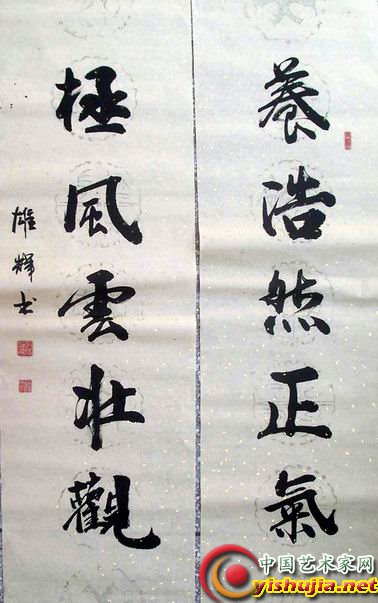 養浩然正氣
極風雲壯觀
雄輝书
中国艺术家网
yishujia.net